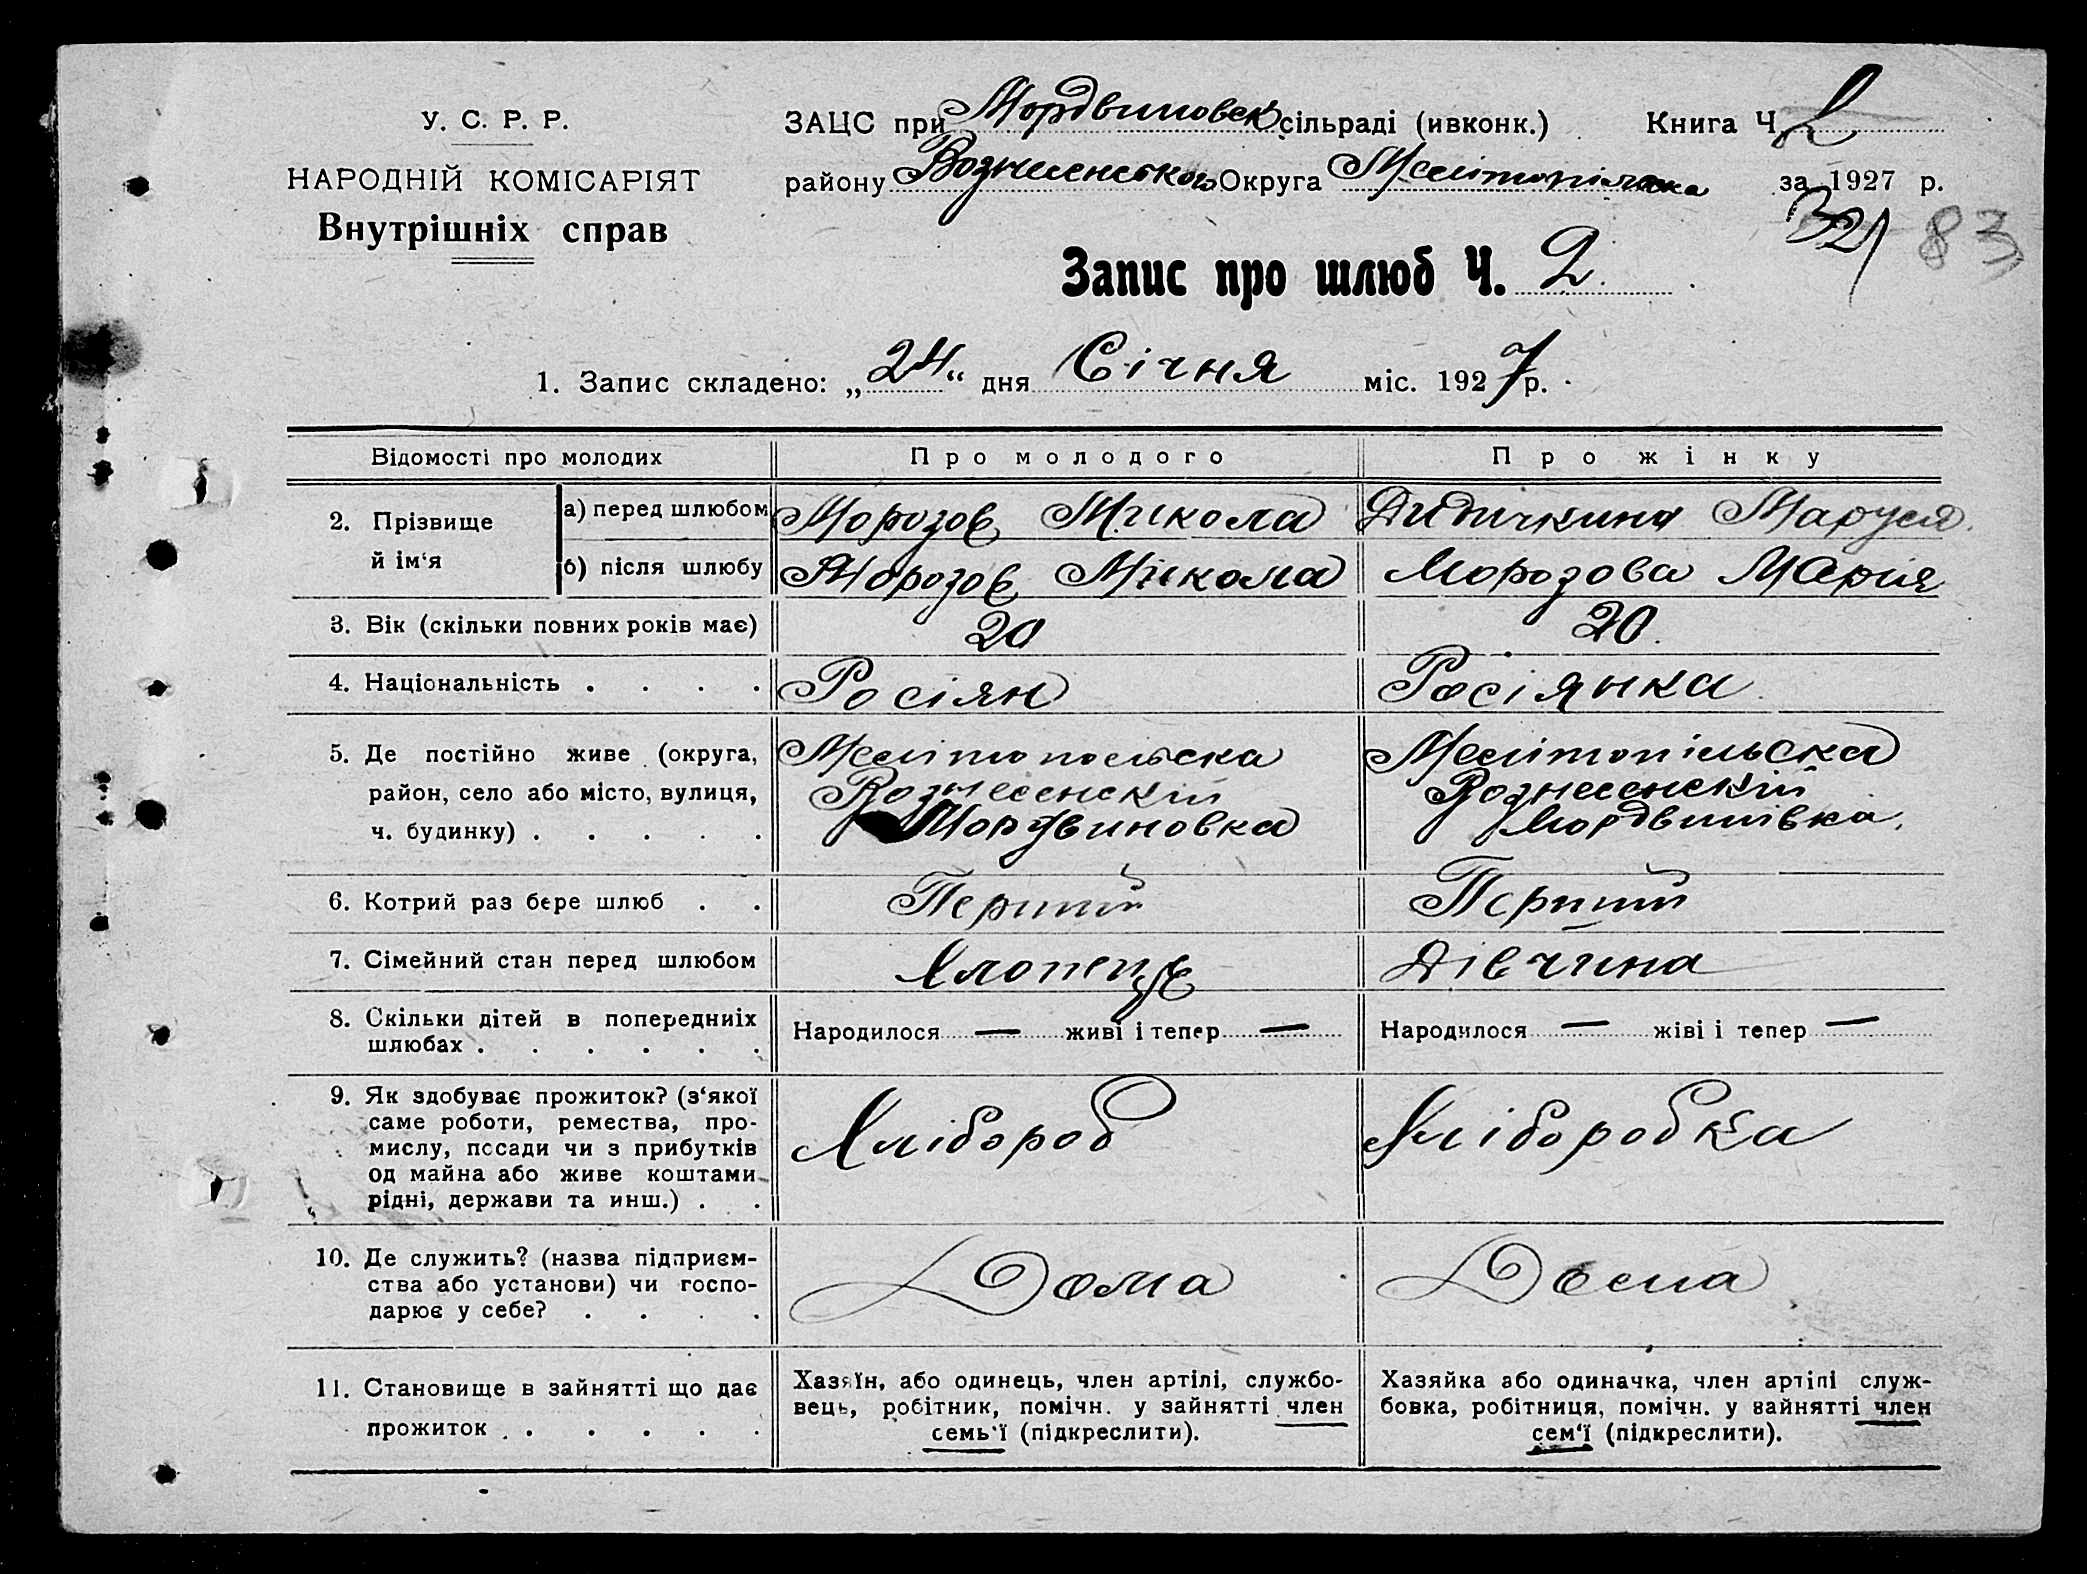 У. С. Р. Р.
НАРОДНІЙ КОМІСАРІЯТ
Внутрішніх справ
ЗАЦС при Мордвиновск сільраді (ивконк.) Книга Ч.
району Вознесенського Округа Мелітопільска за 1927 р.
321 83
Запис про шлюб Ч. 2
1. Запис складено: „24“ дня Січня міс. 1927 р.
Відомості про молодих Про молодого Про жінку
2. Прізвище й ім‘я
а) перед шлюбом Морозов Микола Дидичкина Маруся
б) після шлюбу Морозов Микола Морозова Марія
3. Вік (скільки повних років має) 20 20.
4. Національність . . . . Росіян Росіянка
5. Де постійно живе (округа, Мелітопольска Мелітопільска
район, село або місто, вулиця, Вознесенский Вознесенскій
ч. будинку) . . . . . Мордвиновка Мордвинівка.
6. Котрий раз бере шлюб . . Перший Перший
7. Сімейний стан перед шлюбом Хлопець Дівчина
8. Скільки дітей в попередниіх
шлюбах . . . . . .
Народилося — живі і тепер — Народилося — жіві і тепер —
9. Як здобуває прожиток? (з‘якої
саме роботи, ремества, про-
мислу, посади чи з прибутків
од майна або живе коштами
рідні, держави та инш.) . .
Хлібороб Хліборобка
10. Де служить? (назва підприєм-
ства або установи) чи госпо-
дарює у себе? . . . .
Дома Дома
11. Становище в зайнятті що дає
прожиток . . . . . .
Хазяїн, або одинець, член артілі, службо-
вець, робітник, помічн. у зайнятті член
семь‘ї (підкреслити).
Хазяйка або одиначка, член артілі служ-
бовка, робітниця, помічн. у зайнятті член
сем‘ї (підкреслити).